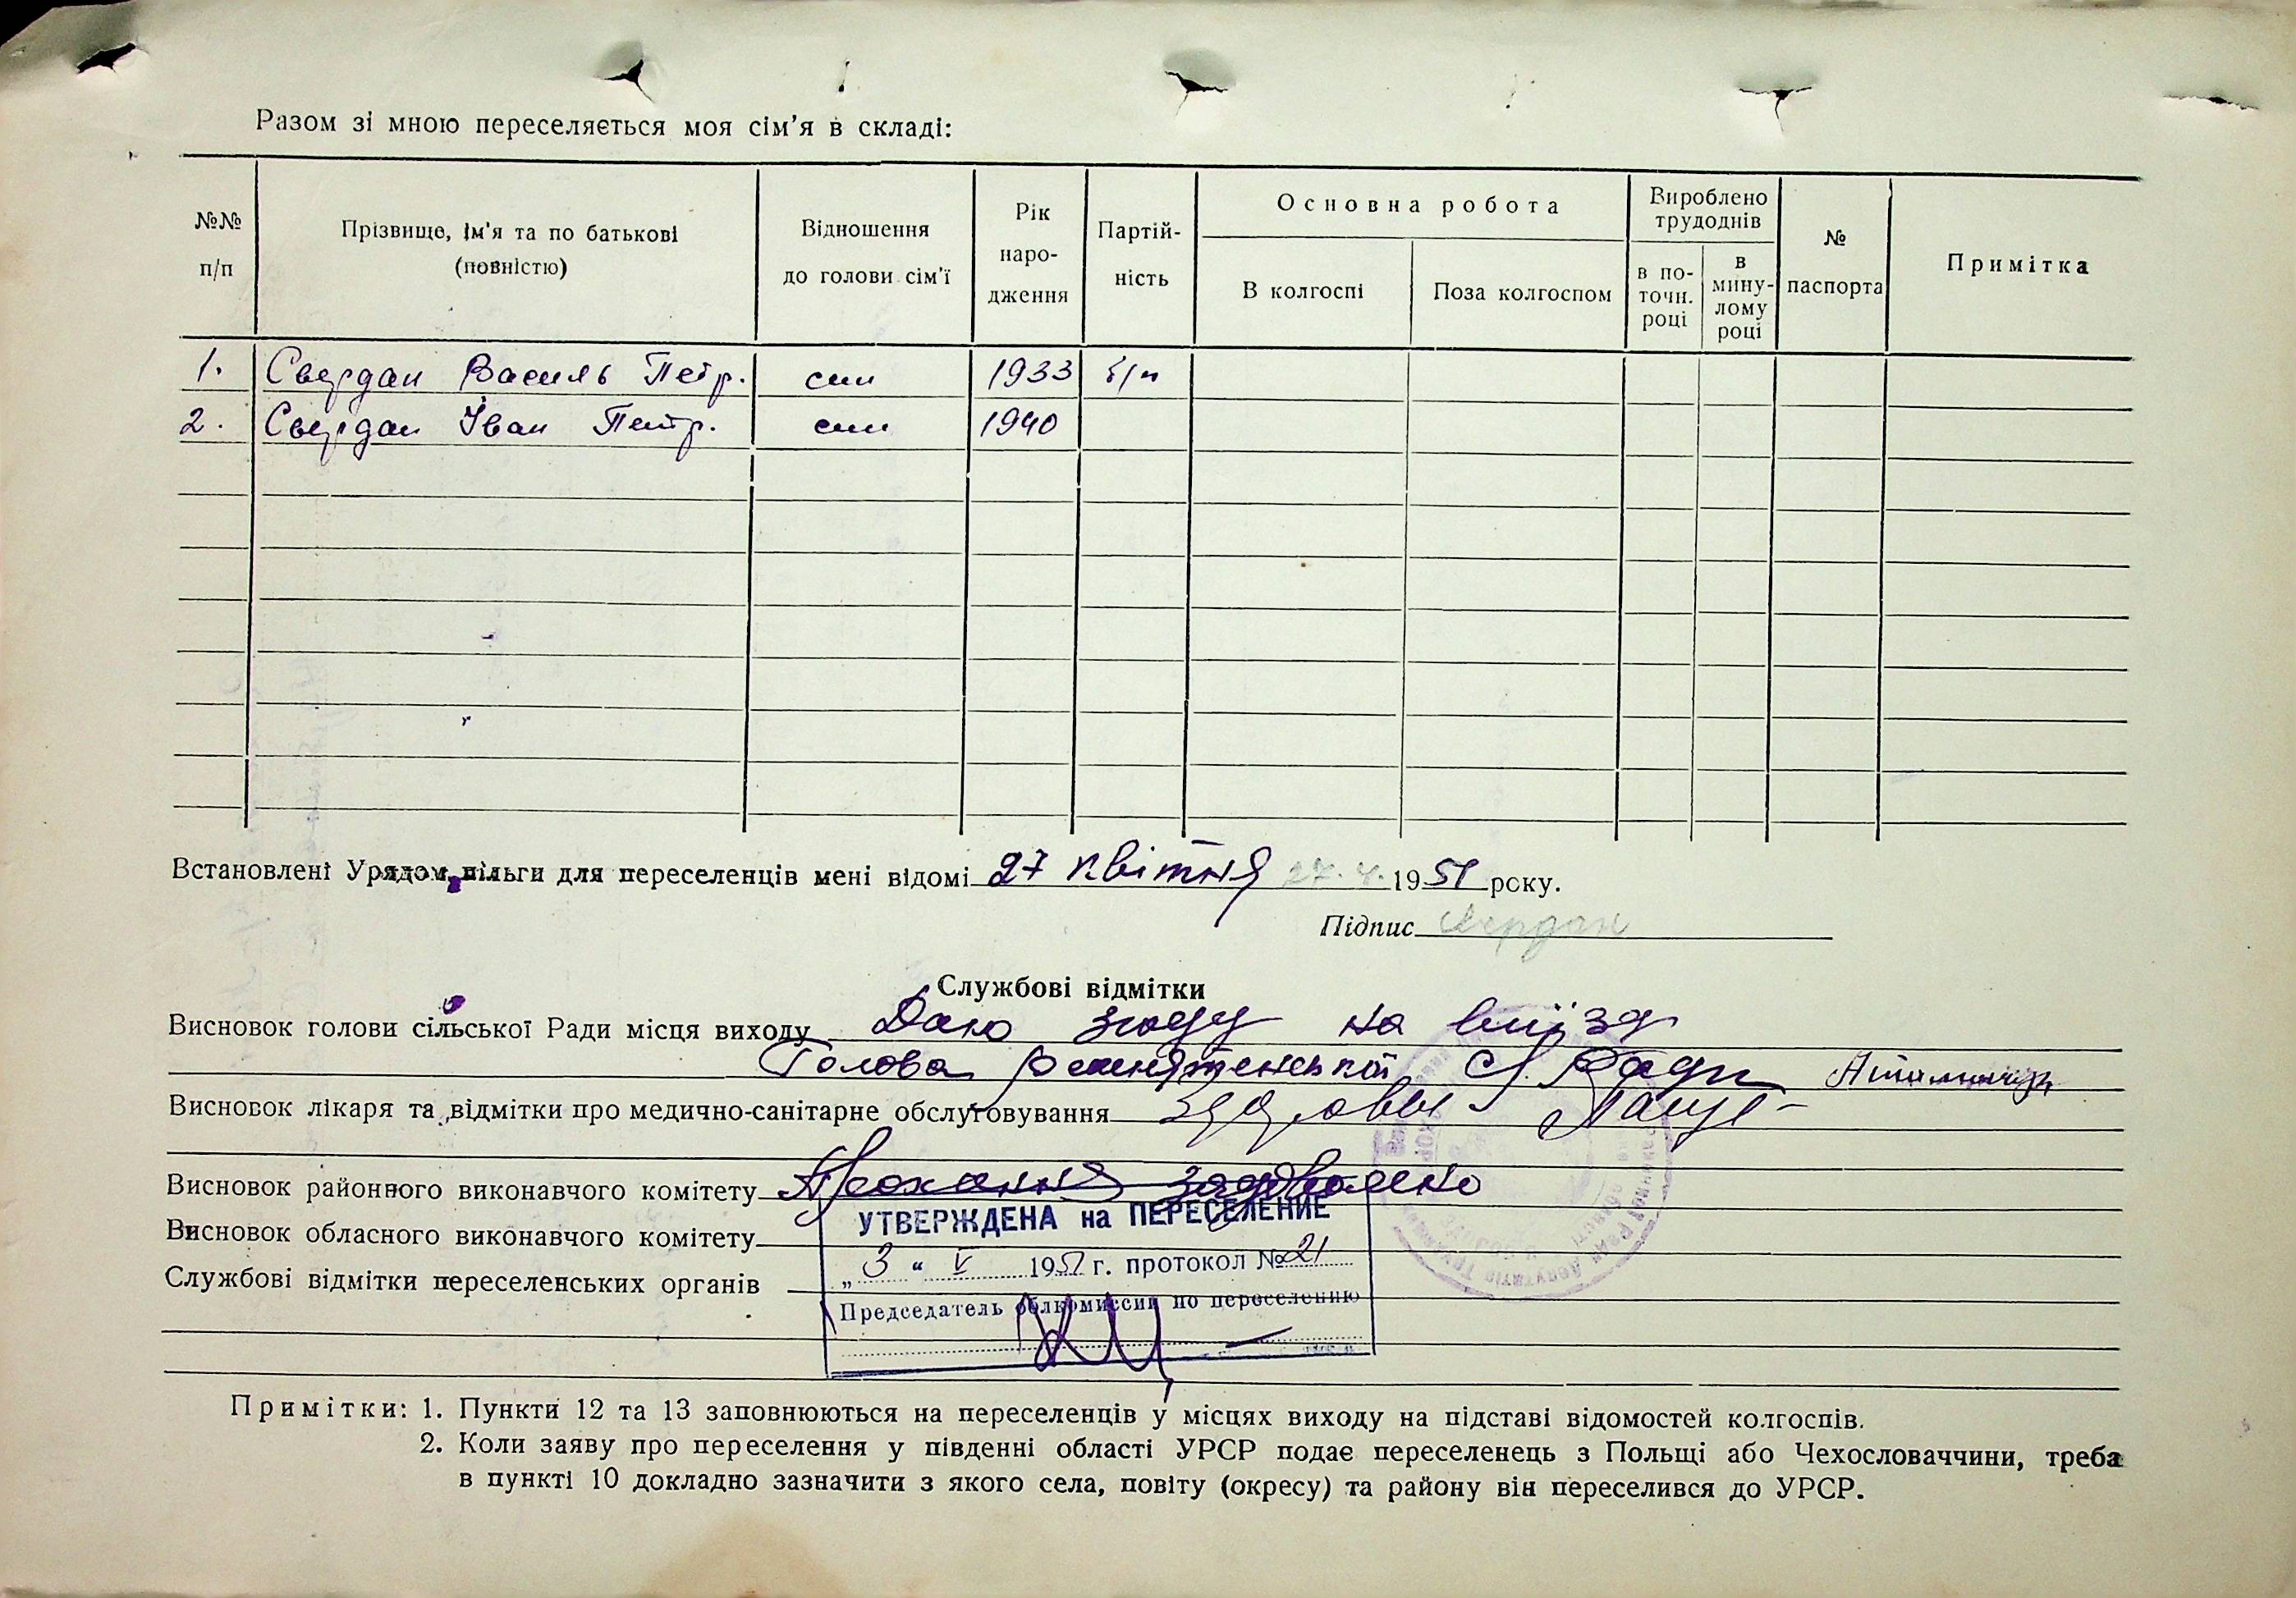 Разом зі мною переселяється моя сім'я в складі:
№№ п/п
Прізвище, ім'я та по батькові (повністю)
Відношення до голови сім'ї
Рік наро-дження
Партій-ність
Основна робота
В колгоспі
Поза колгоспом
Вироблено трудоднів
в по-точн. році
в мину-лому році
№ паспорта
Примітка
1. Свердан Василь Петр. син 1933 б/п
2. Свердан Іван Петр. син 1940
Встановлені Урядом пільги для переселенців мені відомі 27 квітня 27.4. 1951 року.
Підпис Свердан
Службові відмітки
Висновок голови сільської Ради місця виходу Даю згоду на виїзд
Голова С. Ради
Висновок лікаря та відмітки про медично-санітарне обслуговування
Висновок районного виконавчого комітету Прохання задоволено
Висновок обласного виконавчого комітету
УТВЕРЖДЕНА на ПЕРЕСЕЛЕНИЕ
„3“ V 1951 г. протокол № 21
Службові відмітки переселенських органів
Председатель облкомиссии по переселению
Примітки: 1. Пункти 12 та 13 заповнюються на переселенців у місцях виходу на підставі відомостей колгоспів.
2. Коли заяву про переселення у південні області УРСР подає переселенець з Польщі або Чехословаччини, треба
в пункті 10 докладно зазначити з якого села, повіту (окресу) та району він переселився до УРСР.